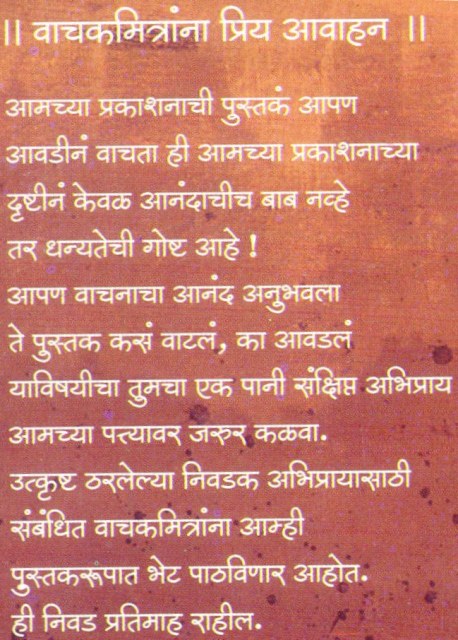 ॥ वाचकमित्रांना प्रिय आवाहन ॥
आमच्या प्रकाशनाची पुस्तकं आपण
आवडीनं वाचता ही आमच्या प्रकाशनाच्या
दृष्टीनं केवळ आनंदाचीच बाब नव्हे
तर धन्यतेची गोष्ट आहे !
आपण वाचनाचा आनंद अनुभवला
ते पुस्तक कसं वाटलं, का आवडलं
याविषयीचा तुमचा एक पानी संक्षिप्त अभिप्राय
आमच्या पत्त्यावर जरुर कळवा.
उत्कृष्ट ठरलेल्या निवडक अभिप्रायासाठी
संबंधित वाचकमित्रांना आम्ही
पुस्तकरूंपात भेट पाठविणार आहोत.
ही निवड प्रतिमाह राहील.